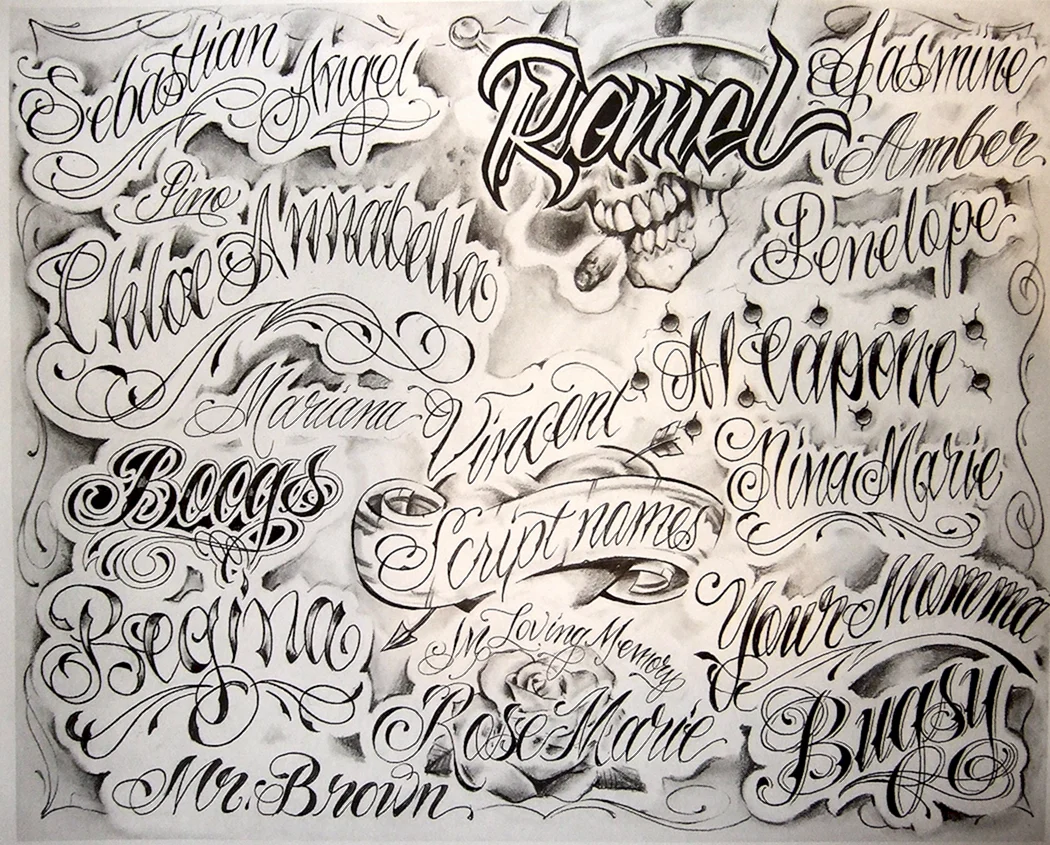 Sebastian
Angel
Romel
Jasmine
Amber
Pino
Chloe
Annabella
Penelope
Al Capone
Mariana
Vincent
Nina Marie
Boogs
Script names
Regina
In Loving Memory
Rose Marie
Your Momma
Bugsy
Mr. Brown